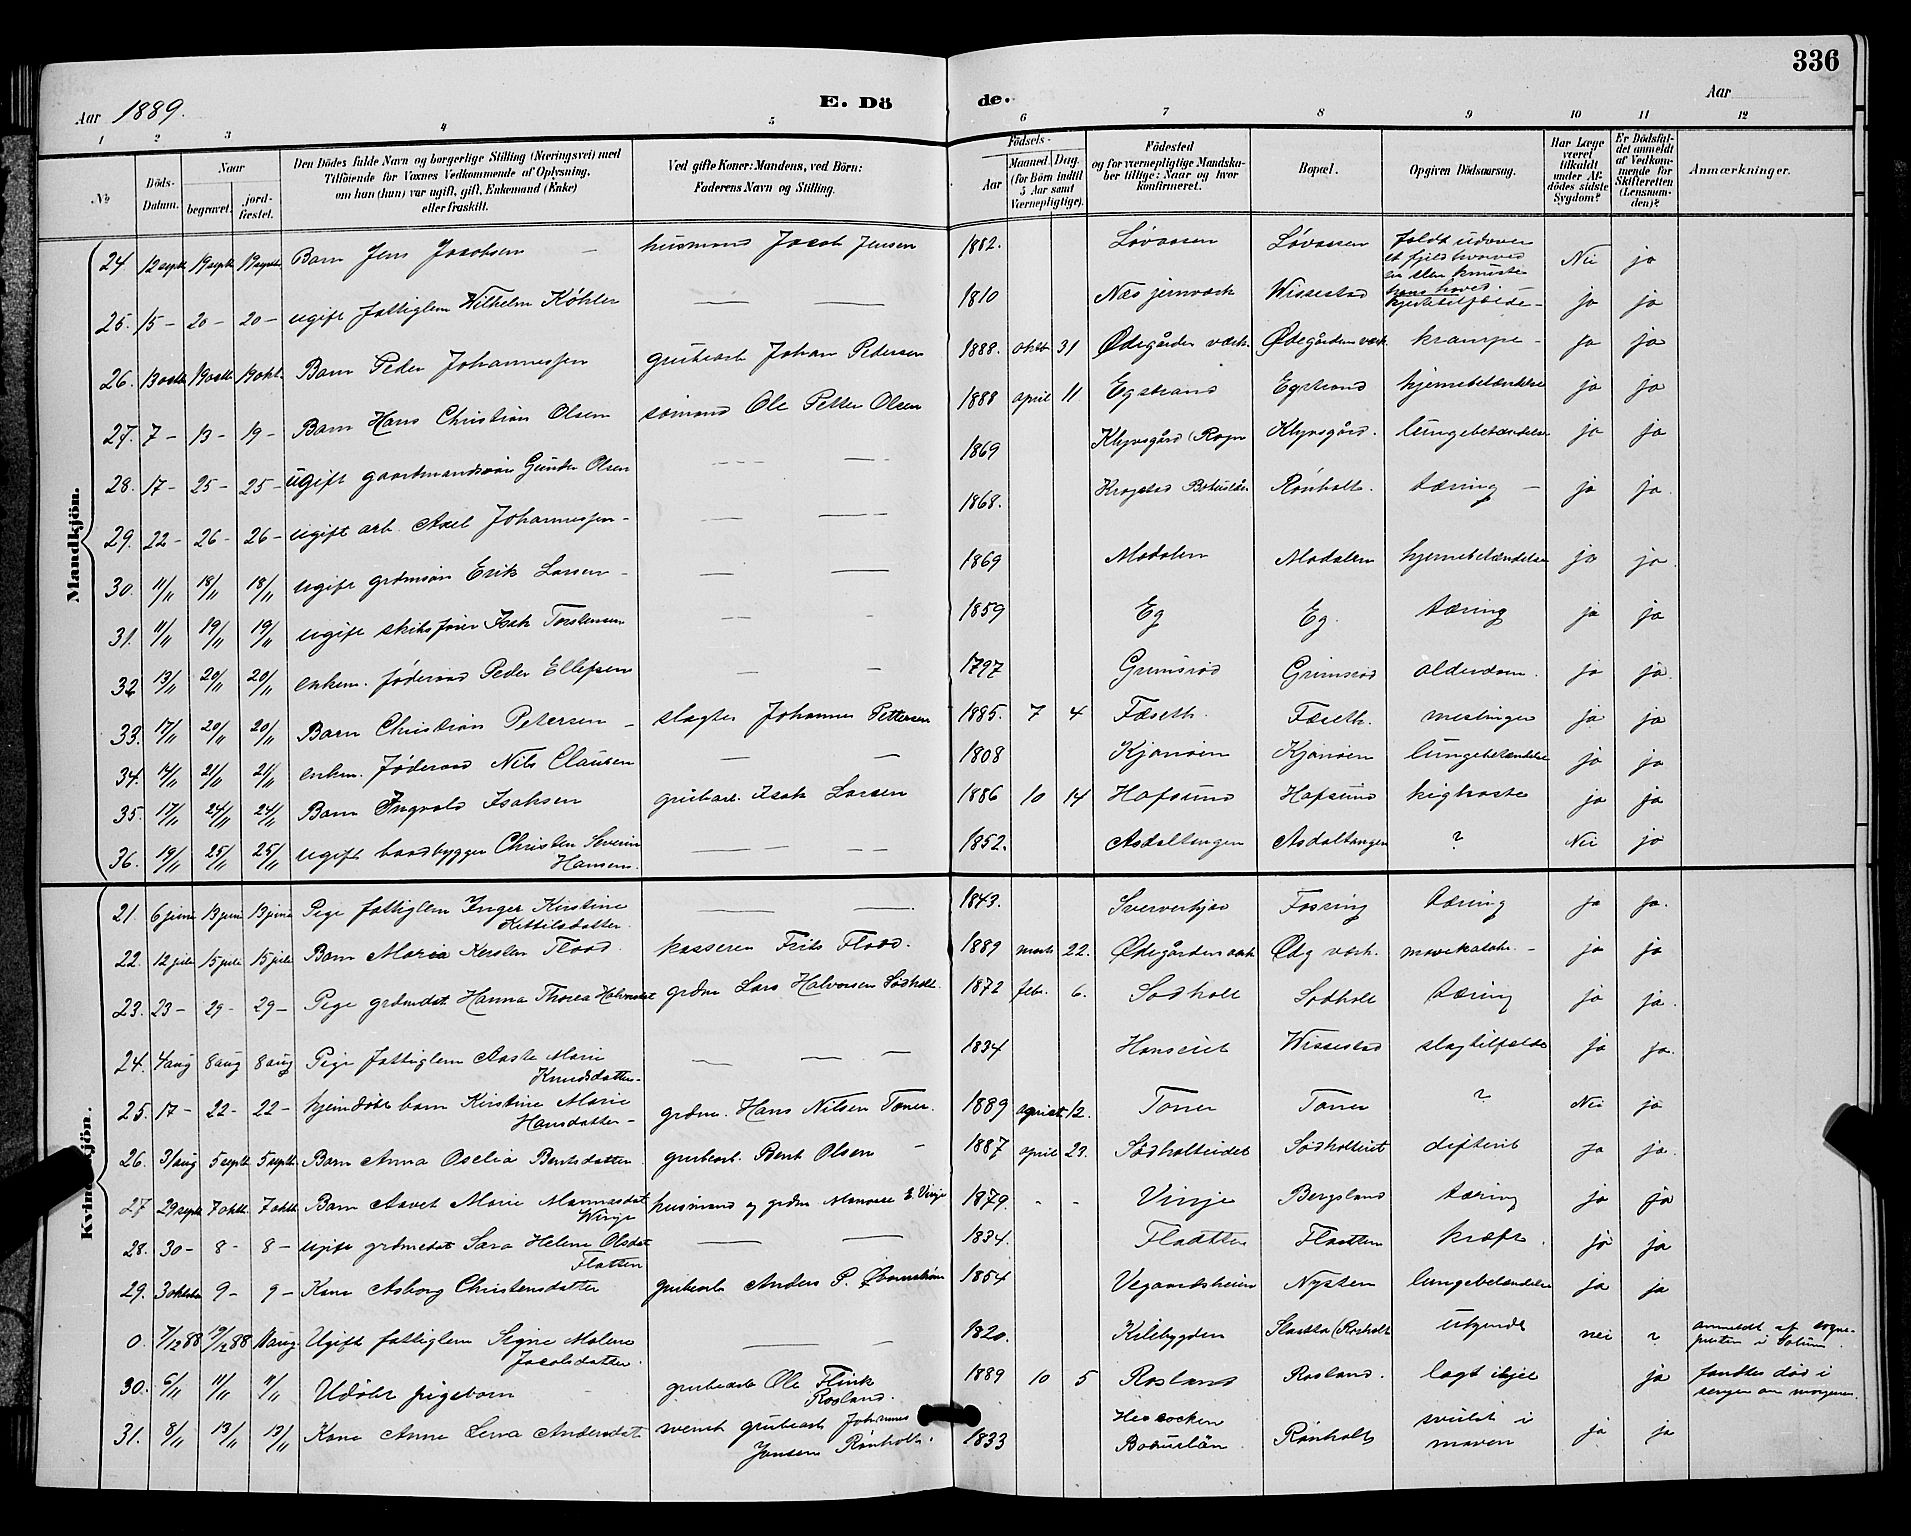 336
Aar 1889. E. Dö de. Aar
1 2 3 4 5 6 7 8 9 10 11 12
№ Döds-Datum. Naar begravet. jordfæstet. Den Dödes fulde Navn og borgerlige Stilling (Næringsvei) med Tilföiende for Voxnes Vedkommende af Oplysning, om han (hun) var ugift, gift, Enkemand (Enke) eller fraskilt. Ved gifte Koner: Mandens, ved Börn: Faderens Navn og Stilling. Födsels- Aar Maaned Dag. (for Börn indtil 5 Aar samt Værnepligtige). Födested og for værnepligtige Mandskaber tillige: Naar og hvor konfirmeret. Bopæl. Opgiven Dödsaarsag. Har Læge været tilkaldt under Afdödes sidste Sygdom? Er Dödsfaldet anmeldt af Vedkommende for Skifteretten (Lensmanden)? Anmærkninger.
Mandkjön.
24 12 septb 19 septb 19 septb Barn Jens Jacobsen — husmand Jacob Jensen 1882. Løvaasen Løvaasen faldt udover et fjeld hvorved en sten knuste hans hoved. Nei ja
25. 15 – 20 – 20 – ugift fattiglem Wilhelm Köhler — — 1810 Næs jernværk Wissestad hjertetilfælde – ja ja
26. 13 oktb 19 oktb 19 okt. Barn Peder Johannessen grubearb Johan Pedersen 1888. oktb 31 Ødegården værk. Ødegården værk krampe – ja ja
27. 7 – 13 – 19 – Barn Hans Christian Olsen sömand Ole Petter Olsen 1888 april 11 Egstrand Egstrand hjernebetændelse ja ja
28. 17 – 25 – 25 – ugift gaardmandssön Gunder Olsen — — 1869 Klypsgård Klypsgård. lungebetændelse ja ja
29. 22 – 26 – 26 – ugift arb. Axel Johannessen – — — 1868. Krogstad Bohuslän Rönholt. tæring – ja ja.
30. 11/11 18/11 18/11 ugift grdmsön Erik Larsen – — — 1869 Modalen Modalen hjernebetændelse ja ja
31. 11/11 19/11 19/11 ugift skibsförer Isak Torstensen — — 1859 Eg Eg. tæring ja ja
32 13/11 20/11 20/11 enkem. föderaad Peder Ellefsen — — 1797 Grimsrød Grimsrød alderdom. ja ja.
33. 17/11 20/11 20/11 Barn Christian Petersen – slagter Johannes Pettersen 1885. 7 4 Fæseth. Fæseth. meslinger ja ja
34. 14/11 21/11 21/11 enkem. föderaad Nils Clausen — — 1808 Kjönöen Kjönöen lungebetændelse ja ja
35. 17/11 24/11 24/11 Barn Ingvald Isaksen grubearb. Isak Larsen 1886 10 14 Hafsund Hafsund kighoste ja ja
36. 19/11 25/11 25/11 ugift baadbygger Christen Severin Hansen. — — 1852. Asdaltangen Asdaltangen ? Nei ja
Kvindekjön.
21. 6 juni 13 juni 13 juni Pige fattiglem Inger Kirstine Kittilsdatter — — 1843. Fosring tæring ja ja.
22. 12 juli 15 juli 15 juli Barn Maria Kirsten Flood. kasserer Frits Flood. 1889 marts 22. Ødegården værk Ødg værk. mavekatahr. – ja ja
23. 23 – 29 – 29 – Pige grdmdat Hanna Thorea Halvorsdat grdm Lars Halvorsen Södholt. 1872 febr. 6. Södholt Södholt tæring ja ja.
24. 4 aug 8 aug 8 aug Pige fattiglem Aaste Marie Knudsdatter – — — 1834 Hanseiet Wissestad slagtilfælde ja ja.
25. 17 – 22 – 22 – hjemdöbt barn Kirstine Marie Hansdatter – grdm. Hans Nilsen Toner. 1889 august 12. Toner Toner ? Nei ja
26. 31 aug 5 septb 5 septb Barn Anna Oselia Bentsdatter. grubearb. Bent Olsen – 1887 april 23. Södholteidet Södholteiet difterit ja ja.
27 29 septb 7 oktb 7 oktb Barn Aavet Marie Manassdat Winje husmand og grdm Manasse E. Vinje 1879. – – Vinje Bergsland tæring ja ja
28. 30 – 8 – 8 – ugift grdmdat Sara Helene Olsdat Flatten — — 1834. Flaatten Flaatten kræft. ja ja
29. 3 oktober 9 – 9 – Kone Asborg Christensdatter grubearb Anders P. 1854 Vegaardsheien Nysten lungebetændelse ja ja
0. 7/12 88 19/12 88 11 aug. Ugift fattiglem Signe Malene Jacobsdatter. — — 1820. Kilebygden Slaatta (Rönholt ubekjendt nei ? anmeldt af sognepresten i Solum.
30. 6/11 11/11 11/11 Udöbt pigebarn – grubearb Ole Flink Rosland. 1889 10 5 Rosland Rosland. lagt ihjel ja fandtes död i sengen om morgenen.
31. 8/11 13/11 13/11 Kone Anne Lena Andersdat svensk grubearb Johannes Jonsen Rönholt. 1833 Bohuslän Rönholt svulst i maven ja ja